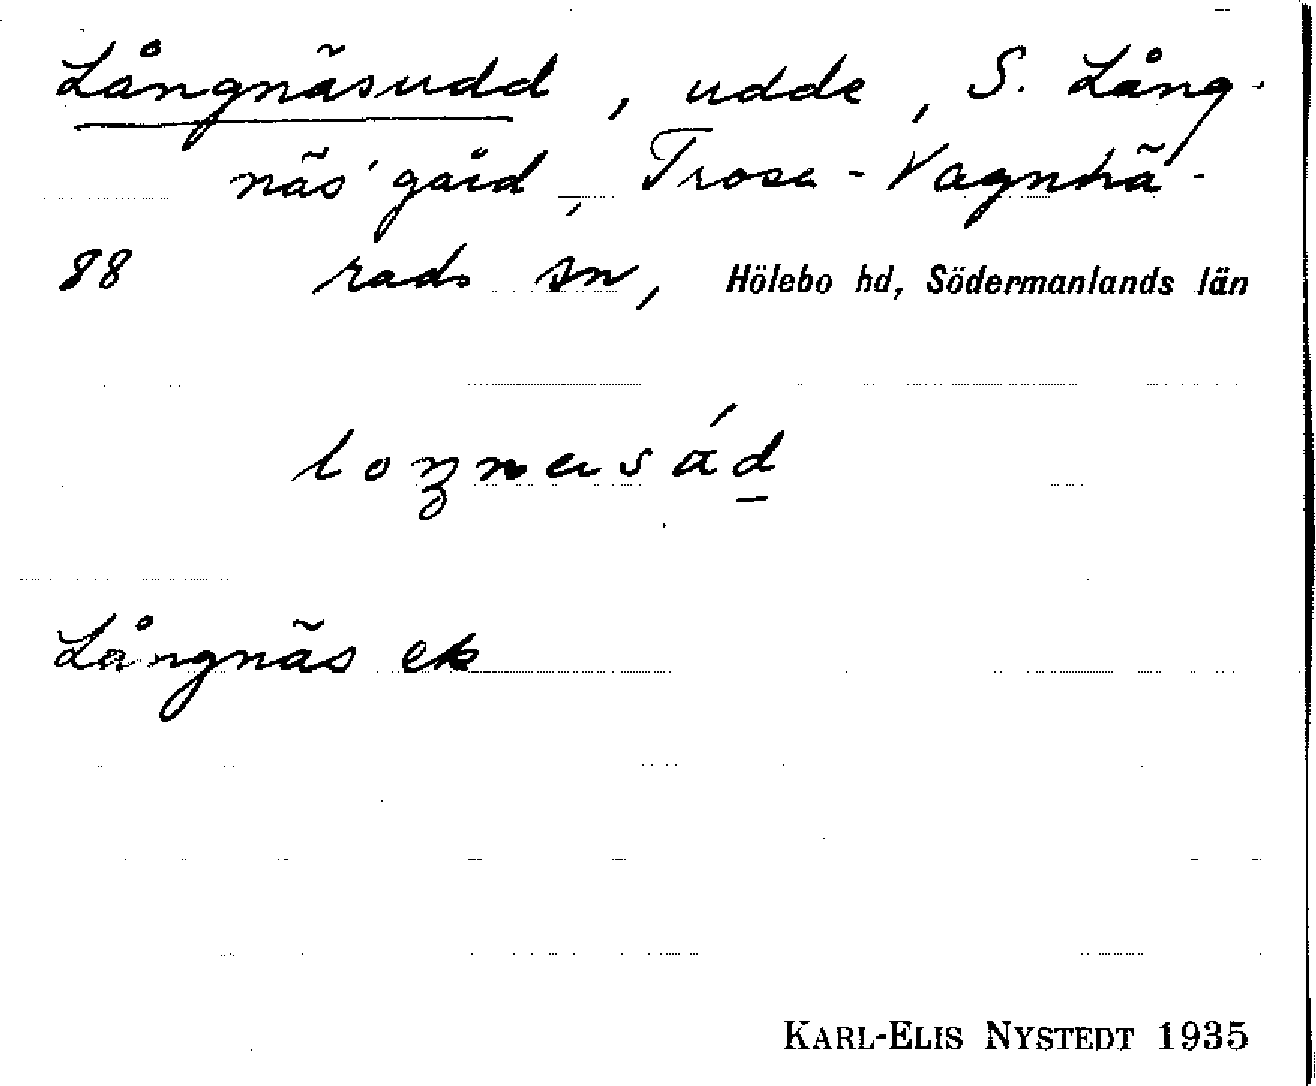 Långnäsudd, udde, S. Lång-
näs' gård, Trosa-Vagnhä-
88 rads sn, Hölebo hd, Södermanlands län
Långnäs ek
KARL-ELIS NYSTEDT 1935